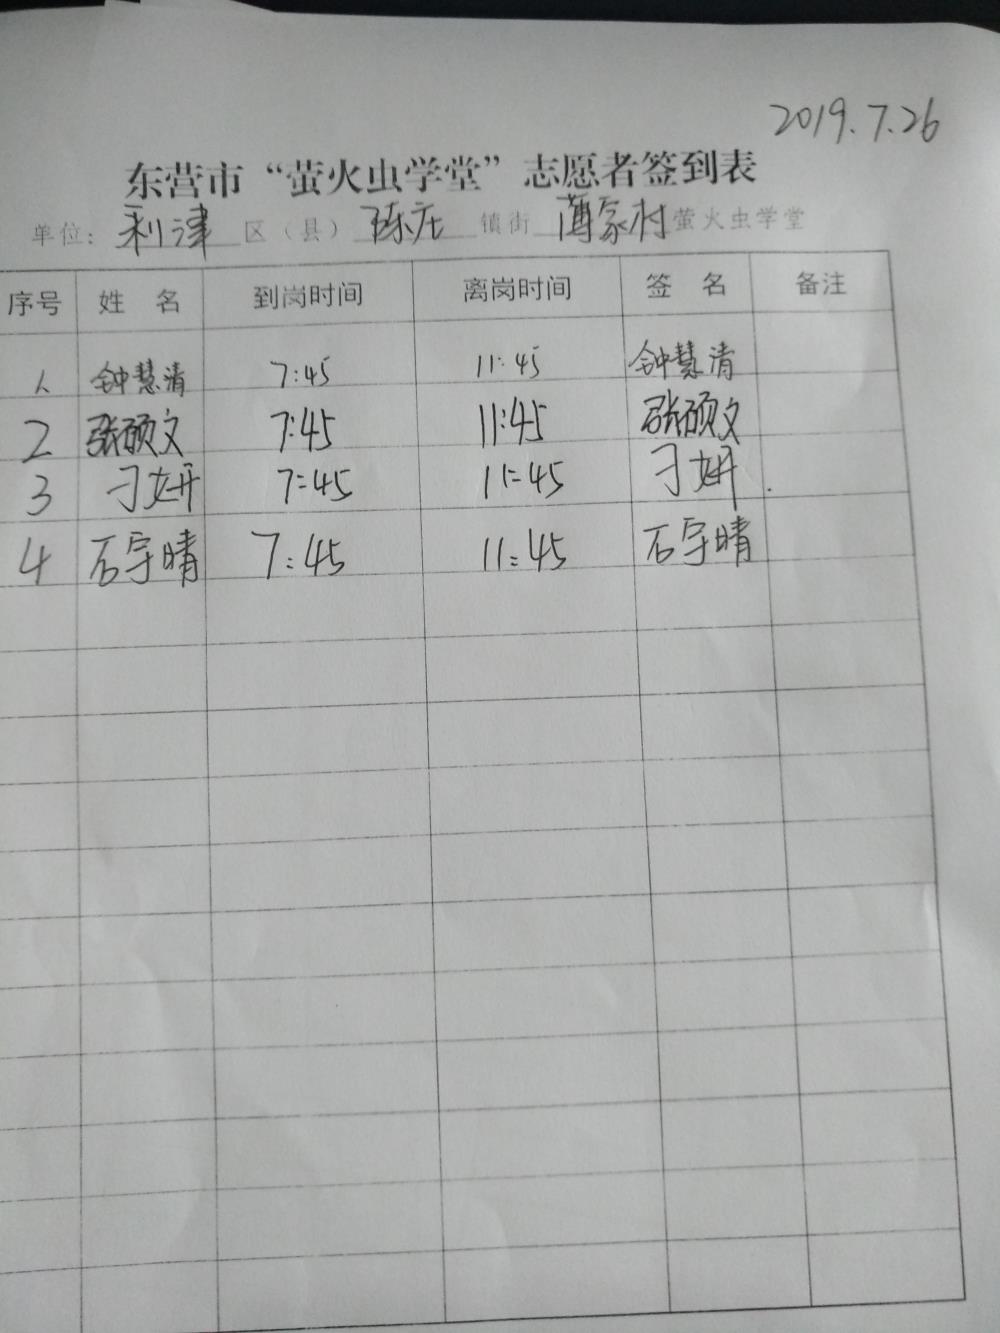 2019.7.26
东营市“萤火虫学堂”志愿者签到表
单位：利津区（县）陈庄镇街薄家村萤火虫学堂
序号 姓 名 到岗时间 离岗时间 签 名 备注
1 钟慧清 7:45 11:45 钟慧清
2 张硕文 7:45 11:45 张硕文
3 刁妍 7:45 11:45 刁妍
4 石宇晴 7:45 11:45 石宇晴